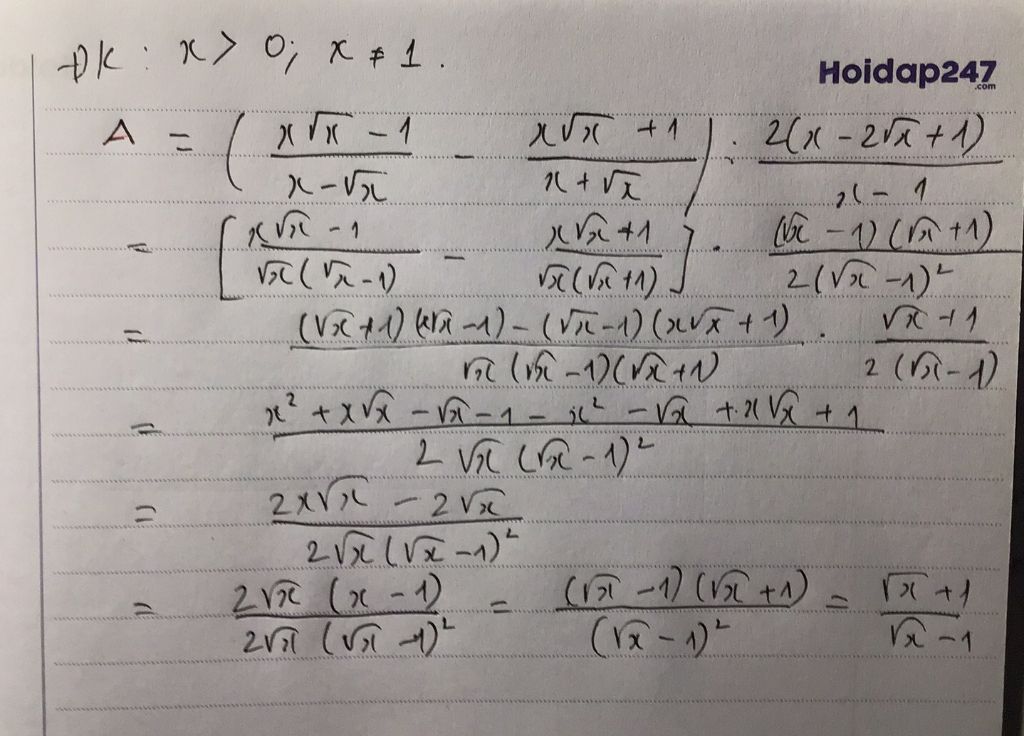 ĐK : x > 0; x ≠ 1.
Hoidap247
.com
A = ( (x√x - 1)/(x - √x) - (x√x + 1)/(x + √x) ) : 2(x - 2√x + 1)/(x - 1)
= [ (x√x - 1)/(√x(√x - 1)) - (x√x + 1)/(√x(√x + 1)) ] . (√x - 1)(√x + 1)/(2(√x - 1)²)
= ((√x + 1)(x√x - 1) - (√x - 1)(x√x + 1))/(√x(√x - 1)(√x + 1)) . (√x + 1)/(2(√x - 1))
= (x² + x√x - √x - 1 - x² - √x + x√x + 1)/(2√x(√x - 1)²)
= (2x√x - 2√x)/(2√x(√x - 1)²)
= (2√x(x - 1))/(2√x(√x - 1)²) = ((√x - 1)(√x + 1))/((√x - 1)²) = (√x + 1)/(√x - 1)